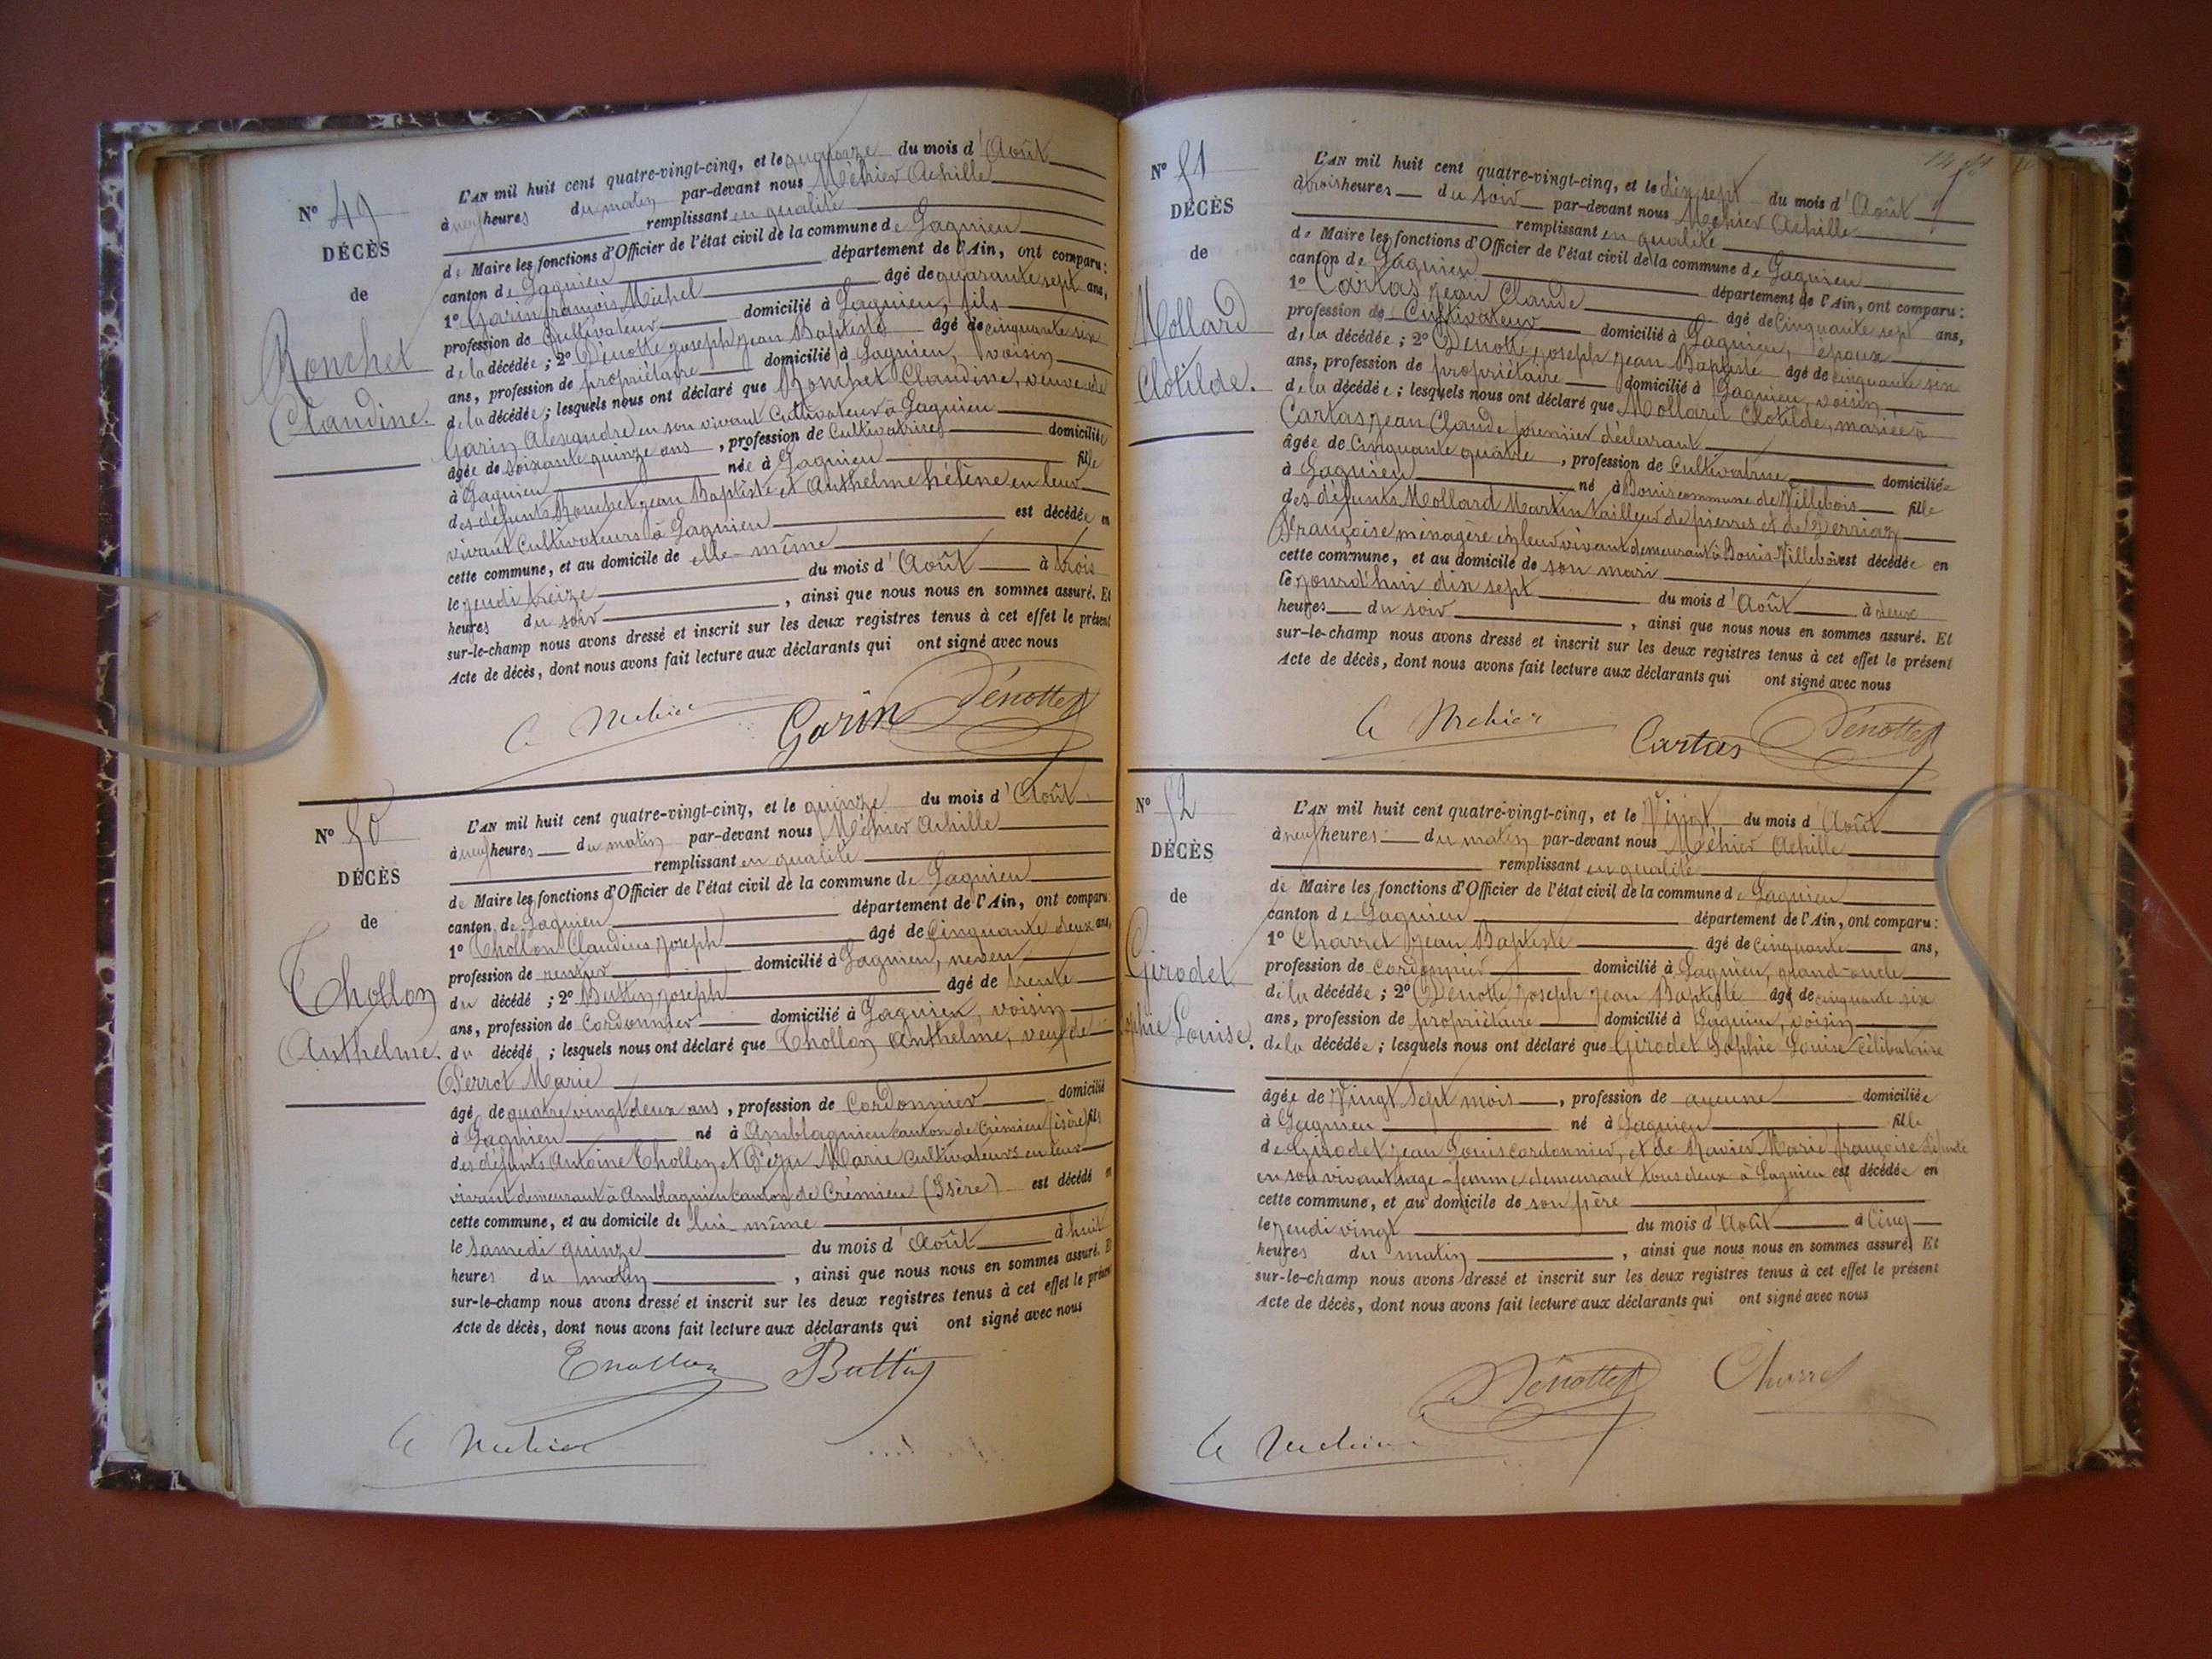 N° 49
DÉCÈS
de
Ronchet
Claudine.
L'AN mil huit cent quatre-vingt-cinq, et le quatorze du mois d'Août
à neuf heures du matin par-devant nous Méhier Achille
remplissant en qualité
de Maire les fonctions d'Officier de l'état civil de la commune de Lagnieu
canton de Lagnieu département de l'Ain, ont comparu:
1° Garin françois Michel âgé de quarante sept ans,
profession de Cultivateur domicilié à Lagnieu, fils
de la décédée; 2° Dénotte joseph jean Baptiste âgé de cinquante six
ans, profession de propriétaire domicilié à Lagnieu, voisin
de la décédée; lesquels nous ont déclaré que Ronchet Claudine, veuve de
Garin Alexandre en son vivant Cultivateur à Lagnieu
âgée de soixante quinze ans, profession de Cultivatrice domiciliée
à Lagnieu née à Lagnieu fille
des défunts Ronchet jean Baptiste et Anthelme hélène en leur
vivant Cultivateurs à Lagnieu est décédée en
cette commune, et au domicile de elle-même
le jeudi treize du mois d'Août à trois
heures du soir, ainsi que nous nous en sommes assuré. Et
sur-le-champ nous avons dressé et inscrit sur les deux registres tenus à cet effet le présent
Acte de décès, dont nous avons fait lecture aux déclarants qui ont signé avec nous
A Mehier Garin Dénotte
N° 50
DÉCÈS
de
Thollon
Anthelme.
L'AN mil huit cent quatre-vingt-cinq, et le quinze du mois d'Août
à neuf heures du matin par-devant nous Méhier Achille
remplissant en qualité
de Maire les fonctions d'Officier de l'état civil de la commune de Lagnieu
canton de Lagnieu département de l'Ain, ont comparu:
1° Thollon Claudius joseph âgé de Cinquante deux ans,
profession de rentier domicilié à Lagnieu, neveu
du décédé; 2° Buttin joseph âgé de trente
ans, profession de Cordonnier domicilié à Lagnieu, voisin
du décédé; lesquels nous ont déclaré que Thollon Anthelme, veuf de
Perrot Marie
âgé de quatre vingt deux ans, profession de Cordonnier domicilié
à Lagnieu né à Amblagnieu canton de Crémieu (isère) fils
des défunts Antoine Thollon et Marie Cultivateurs en leur
vivant demeurant à Amblagnieu canton de Crémieu (Isère) est décédé en
cette commune, et au domicile de lui-même
le Samedi quinze du mois d'Août à huit
heures du matin, ainsi que nous nous en sommes assuré. Et
sur-le-champ nous avons dressé et inscrit sur les deux registres tenus à cet effet le présent
Acte de décès, dont nous avons fait lecture aux déclarants qui ont signé avec nous
Thollon Buttin
A Mehier
N° 51
DÉCÈS
de
Mollard
Clotilde.
L'AN mil huit cent quatre-vingt-cinq, et le dix sept du mois d'Août
à trois heures du soir par-devant nous Méhier Achille
remplissant en qualité
de Maire les fonctions d'Officier de l'état civil de la commune de Lagnieu
canton de Lagnieu département de l'Ain, ont comparu:
1° Cartas jean Claude âgé de Cinquante sept ans,
profession de Cultivateur domicilié à Lagnieu, époux
de la décédée; 2° Dénotte joseph jean Baptiste âgé de cinquante six
ans, profession de propriétaire domicilié à Lagnieu, voisin
de la décédée; lesquels nous ont déclaré que Mollard Clotilde, mariée à
Cartas jean Claude premier déclarant
âgée de Cinquante quatre, profession de Cultivatrice domiciliée
à Lagnieu né à Bouis commune de Villebois fille
des défunts Mollard Martin tailleur de pierres et de Perriaz
Françoise ménagère en leur vivant demeurant à Bouis-Villebois est décédée en
cette commune, et au domicile de son mari
le jourd'hui dix sept du mois d'Août à deux
heures du soir, ainsi que nous nous en sommes assuré. Et
sur-le-champ nous avons dressé et inscrit sur les deux registres tenus à cet effet le présent
Acte de décès, dont nous avons fait lecture aux déclarants qui ont signé avec nous
A Mehier Cartas Dénotte
N° 52
DÉCÈS
de
Girodet
Sophie Louise.
L'AN mil huit cent quatre-vingt-cinq, et le Vingt du mois d'Août
à neuf heures du matin par-devant nous Méhier Achille
remplissant en qualité
de Maire les fonctions d'Officier de l'état civil de la commune de Lagnieu
canton de Lagnieu département de l'Ain, ont comparu:
1° Charrel jean Baptiste âgé de cinquante ans,
profession de cordonnier domicilié à Lagnieu, grand-oncle
de la décédée; 2° Dénotte joseph jean Baptiste âgé de cinquante six
ans, profession de propriétaire domicilié à Lagnieu, voisin
de la décédée; lesquels nous ont déclaré que Girodet Sophie Louise Célibataire
âgée de Vingt Sept mois, profession de aucune domiciliée
à Lagnieu né à Lagnieu fille
de Girodet jean Louis cordonnier, et de Ravier Marie françoise défunte
en son vivant sage-femme demeurant tous deux à Lagnieu est décédée en
cette commune, et au domicile de son père
le jeudi vingt du mois d'Août à Cinq
heures du matin, ainsi que nous nous en sommes assuré. Et
sur-le-champ nous avons dressé et inscrit sur les deux registres tenus à cet effet le présent
Acte de décès, dont nous avons fait lecture aux déclarants qui ont signé avec nous
Dénotte Charrel
A Mehier